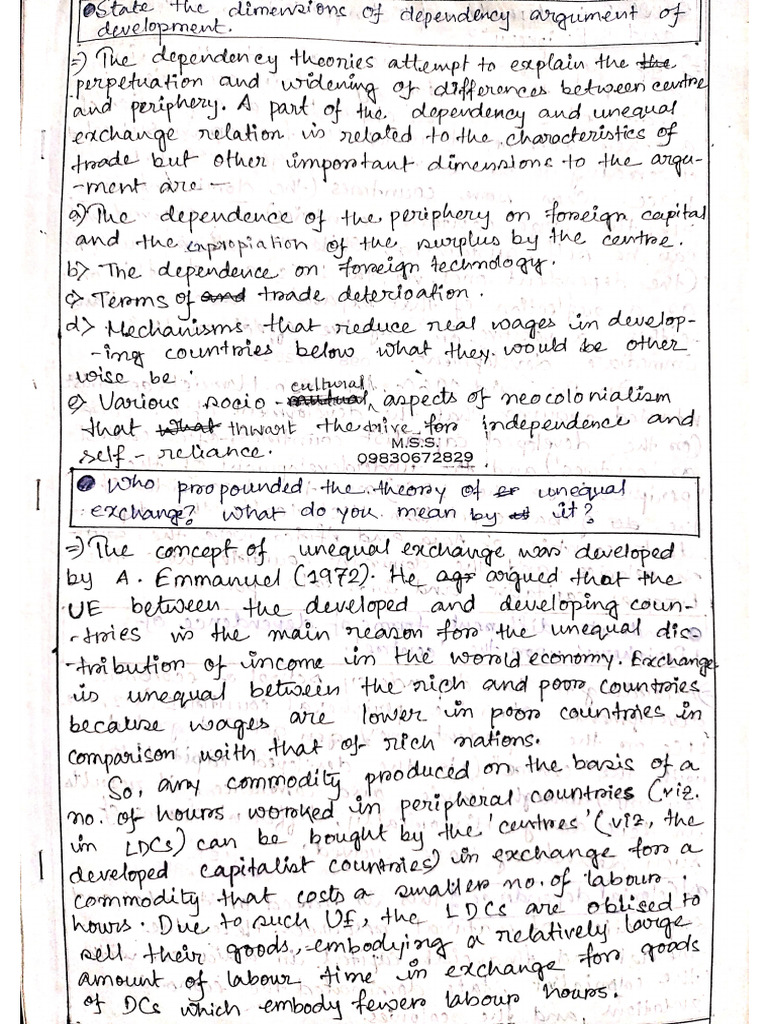 •State the dimensions of dependency argument of
development.
⇒ The dependency theories attempt to explain the the
perpetuation and widening of differences between centre
and periphery. A part of the dependency and unequal
exchange relation is related to the characteristics of
trade but other important dimensions to the argu-
-ment are –
a) The dependence of the periphery on foreign capital
and the expropiation of the surplus by the centre.
b) The dependence on foreign technology.
c) Terms of and trade deterioation.
d) Mechanisms that reduce real wages in develop-
-ing countries below what they would be other
wise be.
e) Various socio - mutual cultural aspects of neocolonialism
that what thwart the drive for independence and
self - reliance.
M.S.S.
09830672829
• Who propounded the theory of er unequal
exchange? What do you mean by it?
⇒ The concept of unequal exchange was developed
by A. Emmanuel (1972). He agr argued that the
UE between the developed and developing coun-
-tries is the main reason for the unequal dis-
-tribution of income in the world economy. Exchange
is unequal between the rich and poor countries
because wages are lower in poor countries in
comparison with that of rich nations.
So, any commodity produced on the basis of a
no. of hours worked in peripheral countries (viz.
in LDCs) can be bought by the 'centres' (viz, the
developed capitalist countries) in exchange for a
commodity that costs a smaller no. of labour
hours. Due to such UE, the LDCs are oblised to
sell their goods, embodying a relatively large
amount of labour time in exchange for goods
of DCs which embody fewer labour hours.